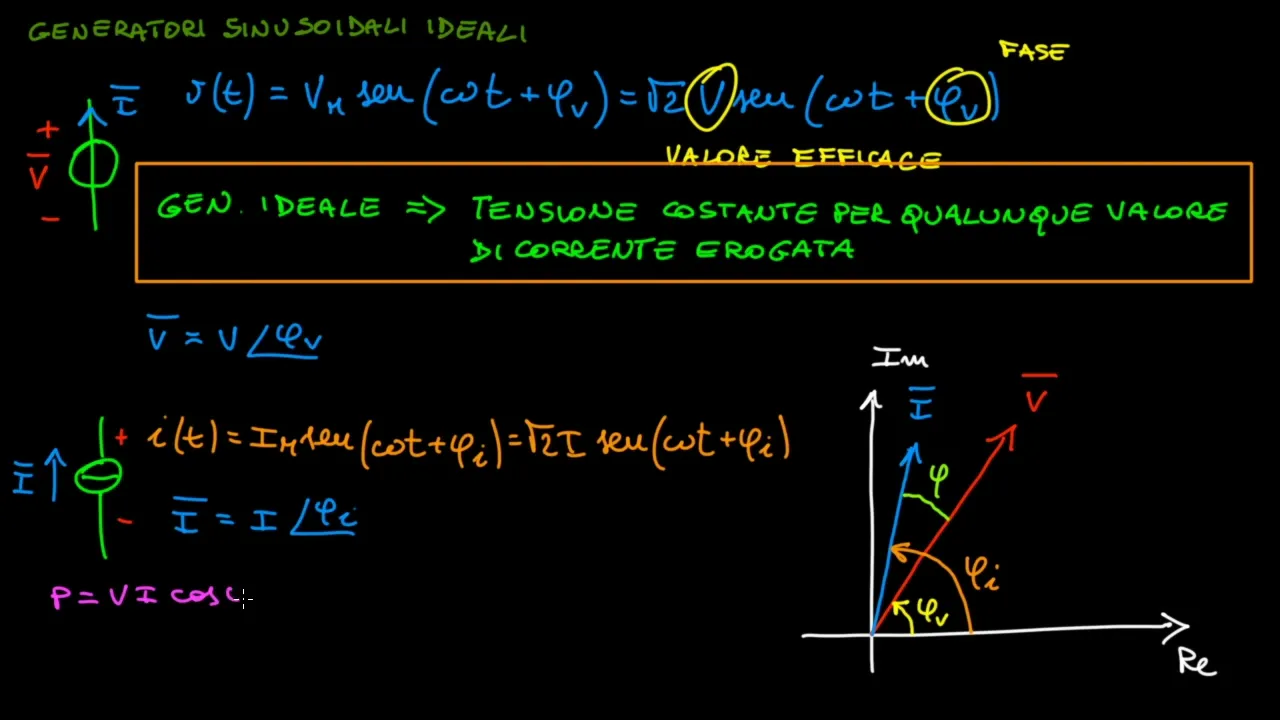 GENERATORI SINUSOIDALI IDEALI
FASE
I̅ v(t) = V_M sen(ωt + φ_v) = √2 V sen(ωt + φ_v)
+
V̅
-
VALORE EFFICACE
GEN. IDEALE => TENSIONE COSTANTE PER QUALUNQUE VALORE
DI CORRENTE EROGATA
V̅ = V ∠φ_v
Im
I̅
V̅
+ i(t) = I_M sen(ωt + φ_i) = √2 I sen(ωt + φ_i)
I̅
φ
- I̅ = I ∠φ_i
φ_i
P = V I cos(
φ_v
Re